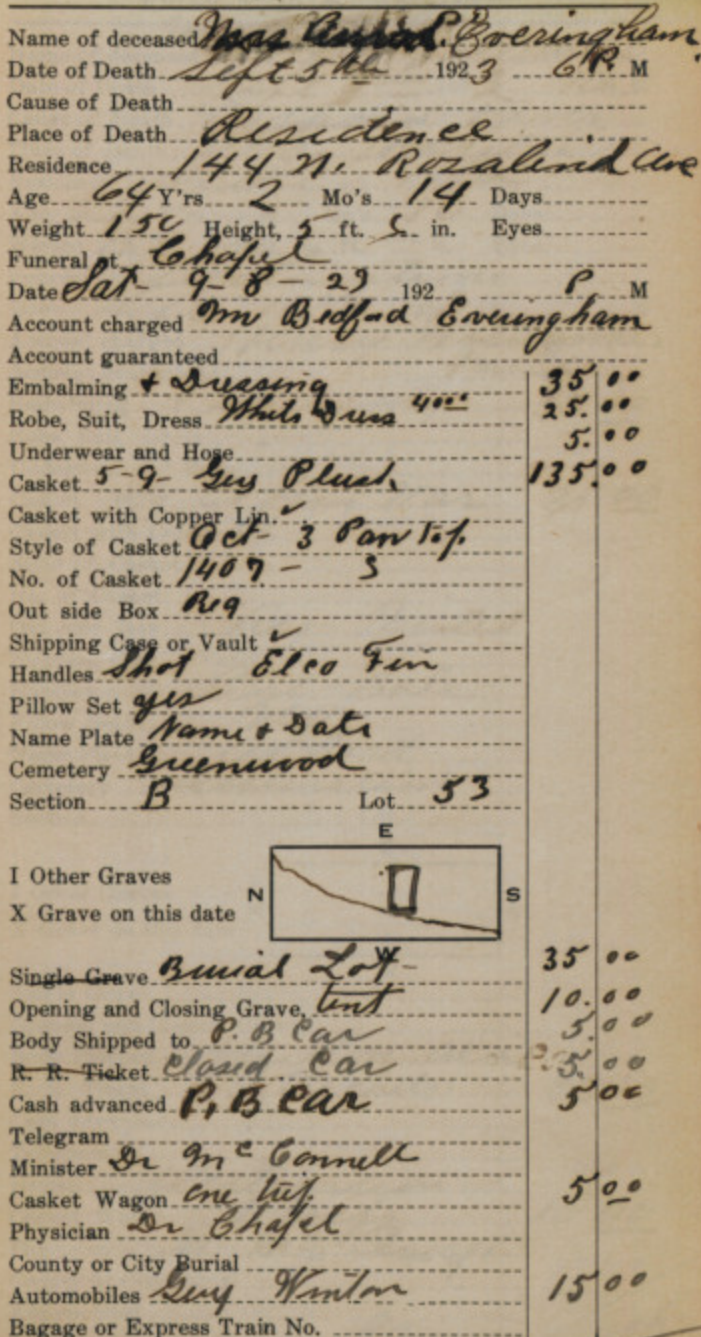 Name of deceased Mrs Everingham
Date of Death Sept 5th 1923 6 P. M
Cause of Death
Place of Death Residence
Residence 144 N. Rosalind Ave
Age 64 Y'rs 2 Mo's 14 Days
Weight 150 Height, 5 ft. in. Eyes
Funeral at Chapel
Date Sat- 9-8-23 192 P M
Account charged Mr Bedford Everingham
Account guaranteed
Embalming + Dressing 35 00
Robe, Suit, Dress White Dress 40 00 25. 00
Underwear and Hose 5. 00
Casket 5-9- Grey Plush 135. 00
Casket with Copper Lin. ✓
Style of Casket Oct- 3 Pan Top.
No. of Casket 1407 - S
Out side Box Reg
Shipping Case or Vault ✓
Handles Short Elco Fin
Pillow Set yes
Name Plate Name + Date
Cemetery Greenwood
Section B Lot 53
E
I Other Graves
N S
X Grave on this date
W
Single Grave Burial Lot- 35 00
Opening and Closing Grave, tent 10. 00
Body Shipped to P. B Car 5. 00
R. R. Ticket Closed Car 5. 00
Cash advanced P. B Car 5 00
Telegram
Minister Dr McConnell
Casket Wagon one trip. 5 00
Physician Dr Chapel
County or City Burial
Automobiles Grey Winton 15 00
Bagage or Express Train No.